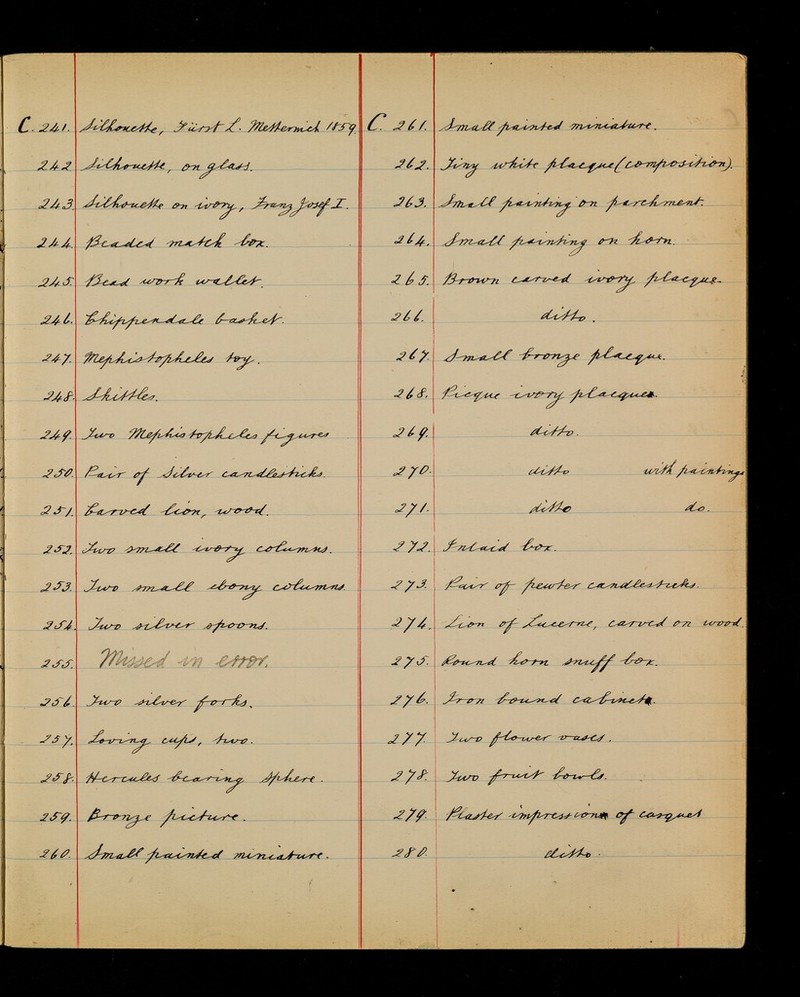 C. 241. Silhouette, Fürst L. Metternich 1859
242 Silhouette, on glass.
243 Silhouette on ivory, Franz Josef I.
244. Beaded match box.
245. Bead work wallet.
246. Chippendale basket.
247. Mephistopheles toy.
248. Skittles.
249. Two Mephistopheles figures
250. Pair of Silver candlesticks.
251. Carved lion, wood.
252. Two small ivory columns.
253. Two small ebony columns.
254. Two silver spoons.
255. Missed in error.
256 Two silver forks.
257. Loving cups, two.
258. Hercules bearing Sphere.
259. Bronze picture.
260. Small painted miniature.
C. 261. Small painted miniature.
262. Tiny white placque (composition).
263. Small painting on parchment.
264. Small painting on horn.
265. Brown carved ivory placque.
266. ditto.
267. Small bronze placque.
268. Picque ivory placques.
269. ditto.
270. ditto with paintings
271. ditto do.
272. Inlaid box.
273. Pair of pewter candlesticks.
274. Lion of Lucerne, carved on wood.
275. Round horn snuff box.
276. Iron bound cabinet.
277. Two flower vases.
278. Two fruit bowls.
279. Plaster impression of casquet
280. ditto.